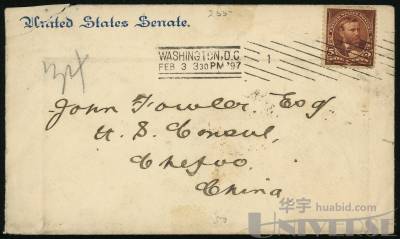 255-
United States Senate.
WASHINGTON, D.C.
FEB 3 3 30 PM '97
1
5
5
John Fowler, Esq
U. S. Consul,
Chefoo,
China
华宇 huabid.com
UNIVERSE